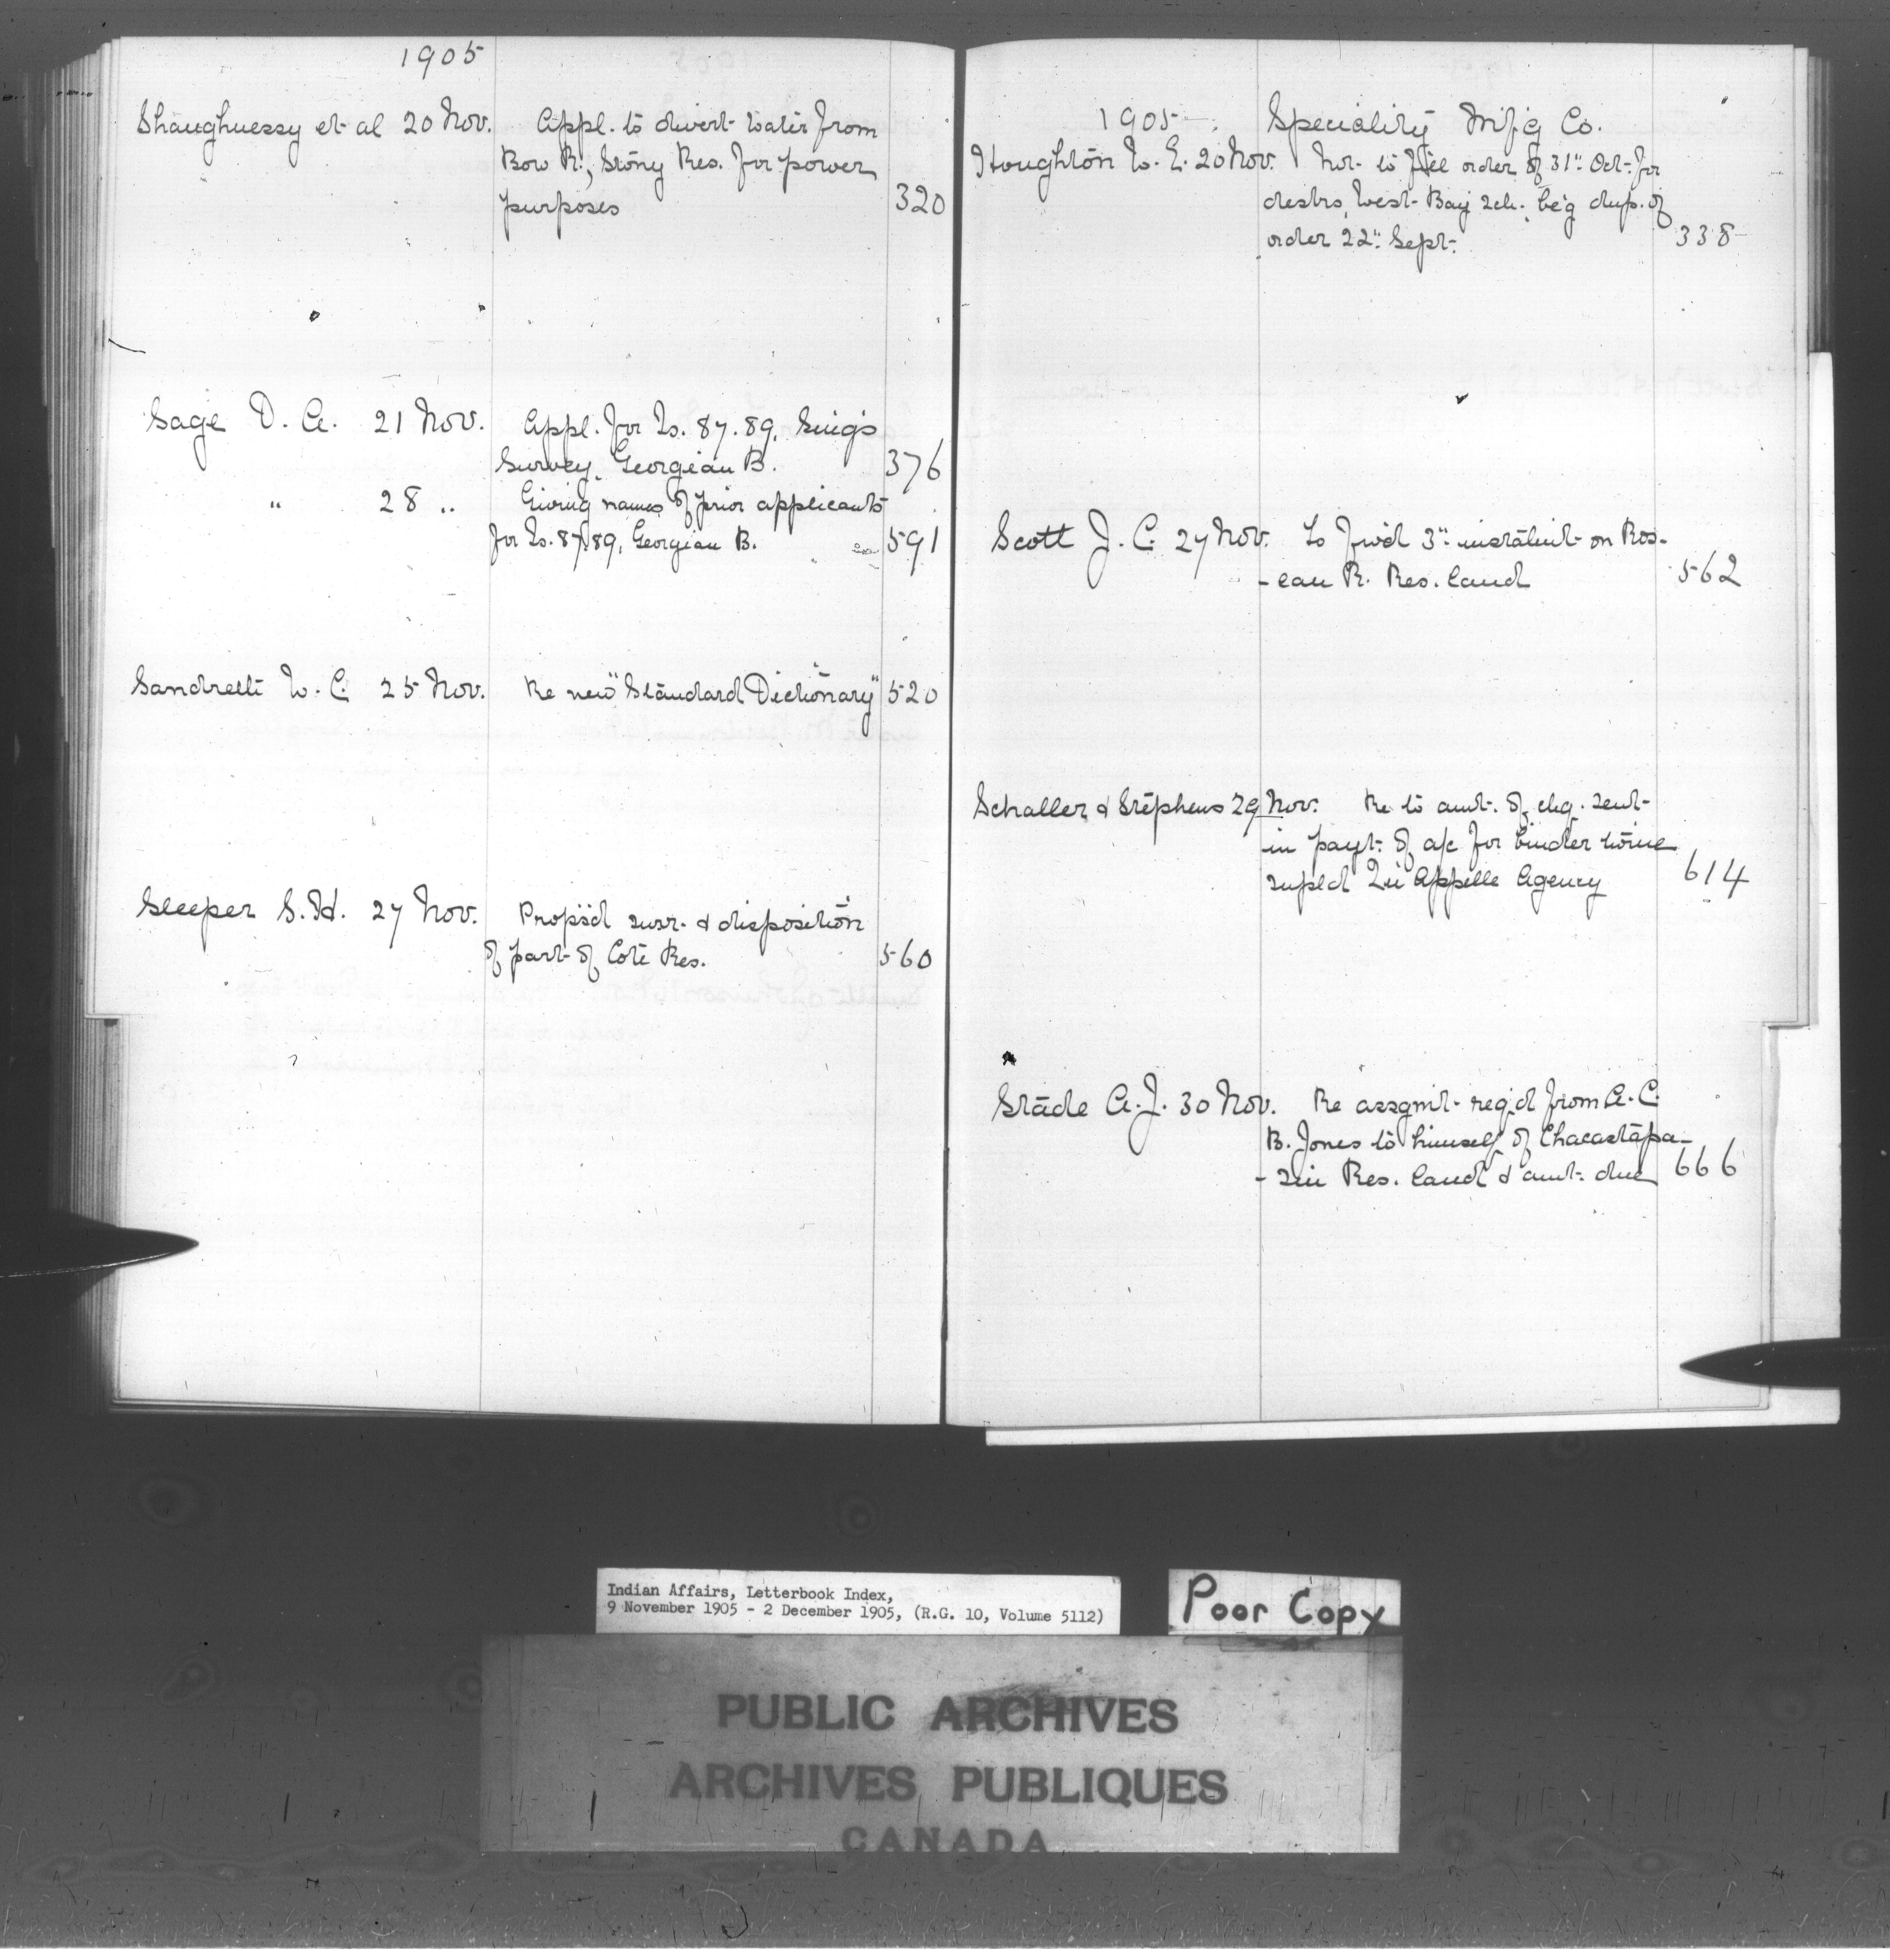 1905
Shaughnessy et al 20 Nov. Appl. to divert water from
Bow R., Stony Res. for power
purposes 320
Sage D. A. 21 Nov. Appl. for Is. 87. 89,
Survey, Georgian B. 376
" 28 " Giving names of prior applicants
for Is. 87, 89, Georgian B. 591
Sandretti W. C. 25 Nov. Re new "Standard Dictionary" 520
Sleeper S. H. 27 Nov. Props'd surr. & disposition
of part of Coté Res. 560
1905 Speciality Mf'g Co.
Houghton W. E. 20 Nov. Not to fill order of 31" Oct. for
desks, West Bay sch. be'g dup. of
order 22" Sept. 338
Scott J. C. 27 Nov. To fw'd 3" instalmt on Ros-
-eau R. Res. land 562
Schaller & Stephens 29 Nov. Re to amt. of chq. sent
in payt. of a/c for binder twine
supl'd Qu'Appelle Agency 614
Stade A. J. 30 Nov. Re assgnmt reqd from A. C.
B. Jones to himself of Chacastapa-
-sin Res. land & amt. due 666
Indian Affairs, Letterbook Index,
9 November 1905 - 2 December 1905, (R.G. 10, Volume 5112)
Poor Copy
PUBLIC ARCHIVES
ARCHIVES PUBLIQUES
CANADA